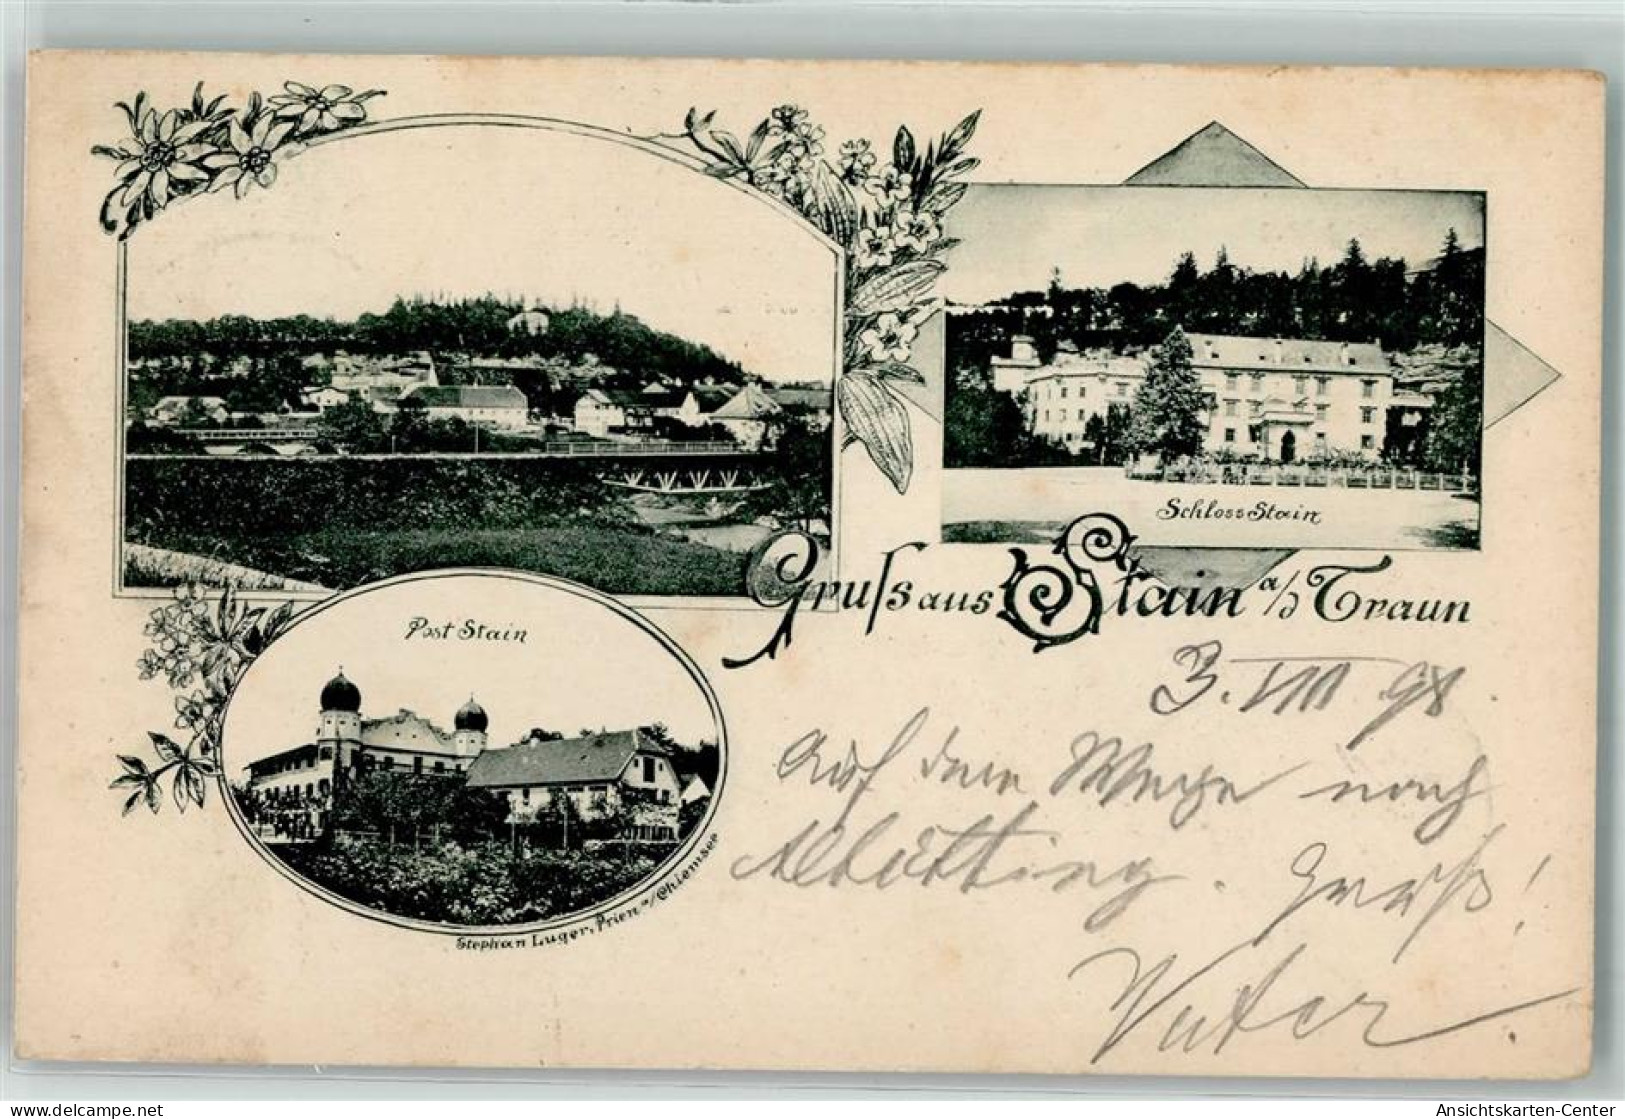 Schloss Stain
Gruſs aus Stain a/d Traun
Post Stain
Stephan Luger, Prien a/Chiemsee
3. VIII 98.
Auf dem Wege nach
Altötting. Gruß!
Vater.
www.delcampe.net
Ansichtskarten-Center